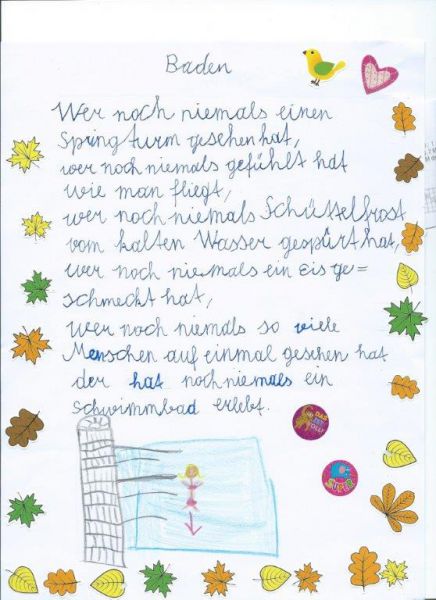 Baden
Wer noch niemals einen
Springturm gesehen hat,
wer noch niemals gefühlt hat
wie man fliegt,
wer noch niemals Schüttelfrost
vom kalten Wasser gespürt hat,
wer noch niemals ein Eis ge=
schmeckt hat,
wer noch niemals so viele
Menschen auf einmal gesehen hat
der hat noch niemals ein
Schwimmbad erlebt.
DAS
IST
TOLL!
SUPER